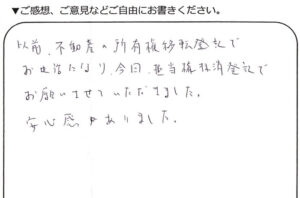 ▼ご感想、ご意見などご自由にお書きください。
以前、不動産の所有権移転登記で
お世話になり、今回、抵当権抹消登記で
お願いさせていただきました。
安心感がありました。